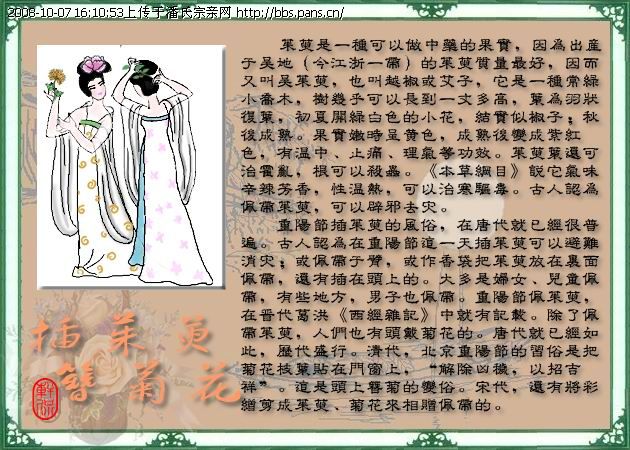 2008-10-07 16:10:53上传于潘氏宗亲网 http://bbs.pans.cn/
茱萸是一種可以做中藥的果實，因為出産
于吴地（今江浙一帶）的茱萸質量最好，因而
又叫吴茱萸，也叫越椒或艾子，它是一種常綠
小喬木，樹幾乎可以長到一丈多高，葉為羽狀
復葉，初夏開綠白色的小花，結實似椒子；秋
後成熟。果實嫩時呈黄色，成熟後變成紫紅
色，有温中、止痛、理氣等功效。茱萸葉還可
治霍亂，根可以殺蟲。《本草綱目》說它氣味
辛辣芳香，性温熱，可以治寒驅毒。古人認為
佩帶茱萸，可以辟邪去灾。
重陽節插茱萸的風俗，在唐代就已經很普
遍。古人認為在重陽節這一天插茱萸可以避難
消灾；或佩帶于臂，或作香袋把茱萸放在裏面
佩帶，還有插在頭上的。大多是婦女、兒童佩
帶，有些地方，男子也佩帶。重陽節佩茱萸，
在晉代葛洪《西經雜記》中就有記載。除了佩
帶茱萸，人們也有頭戴菊花的。唐代就已經如
此，歷代盛行。清代，北京重陽節的習俗是把
菊花枝葉貼在門窗上，“解除凶穢，以招吉
祥”。這是頭上簪菊的變俗。宋代，還有將彩
繒剪成茱萸、菊花來相贈佩帶的。
插茱萸
簪菊花